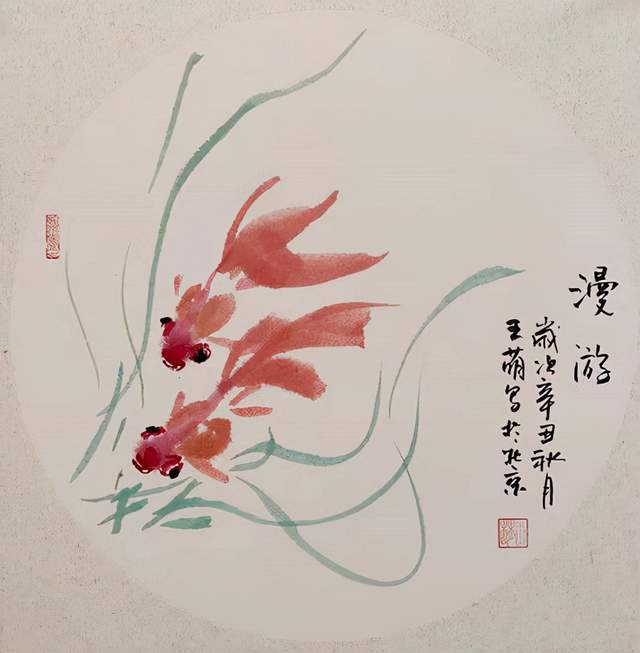 漫游
歲次辛丑秋月
王萌写於北京